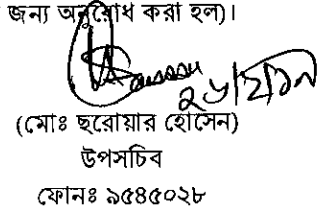 জন্য অনুরোধ করা হল)।
(মোঃ ছরোয়ার হোসেন)
উপসচিব
ফোনঃ ৯৫৪৫০২৮